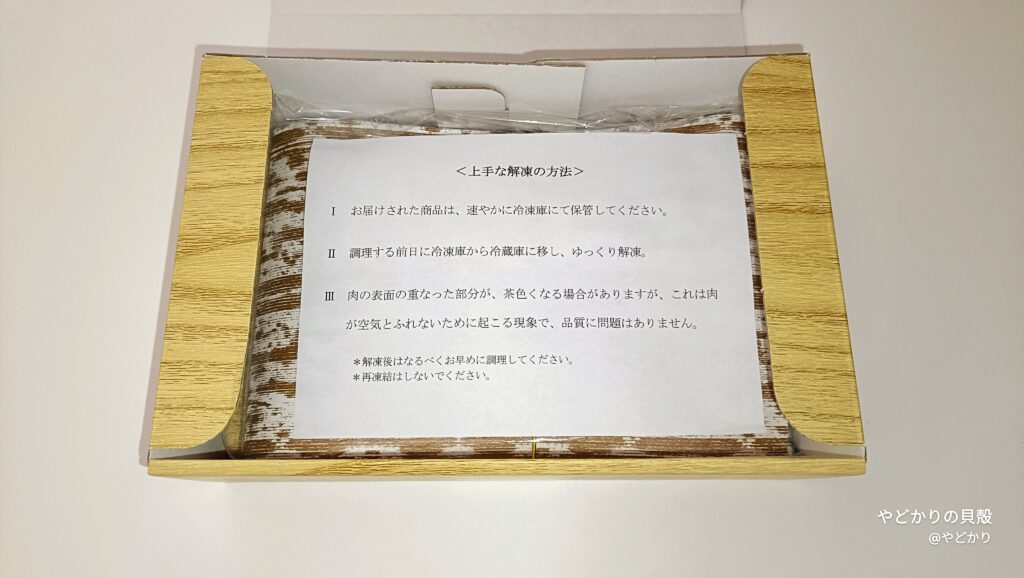 ＜上手な解凍の方法＞
Ⅰ　お届けされた商品は、速やかに冷凍庫にて保管してください。
Ⅱ　調理する前日に冷凍庫から冷蔵庫に移し、ゆっくり解凍。
Ⅲ　肉の表面の重なった部分が、茶色くなる場合がありますが、これは肉
が空気とふれないために起こる現象で、品質に問題はありません。
＊解凍後はなるべくお早めに調理してください。
＊再凍結はしないでください。
やどかりの貝殻
@やどかり